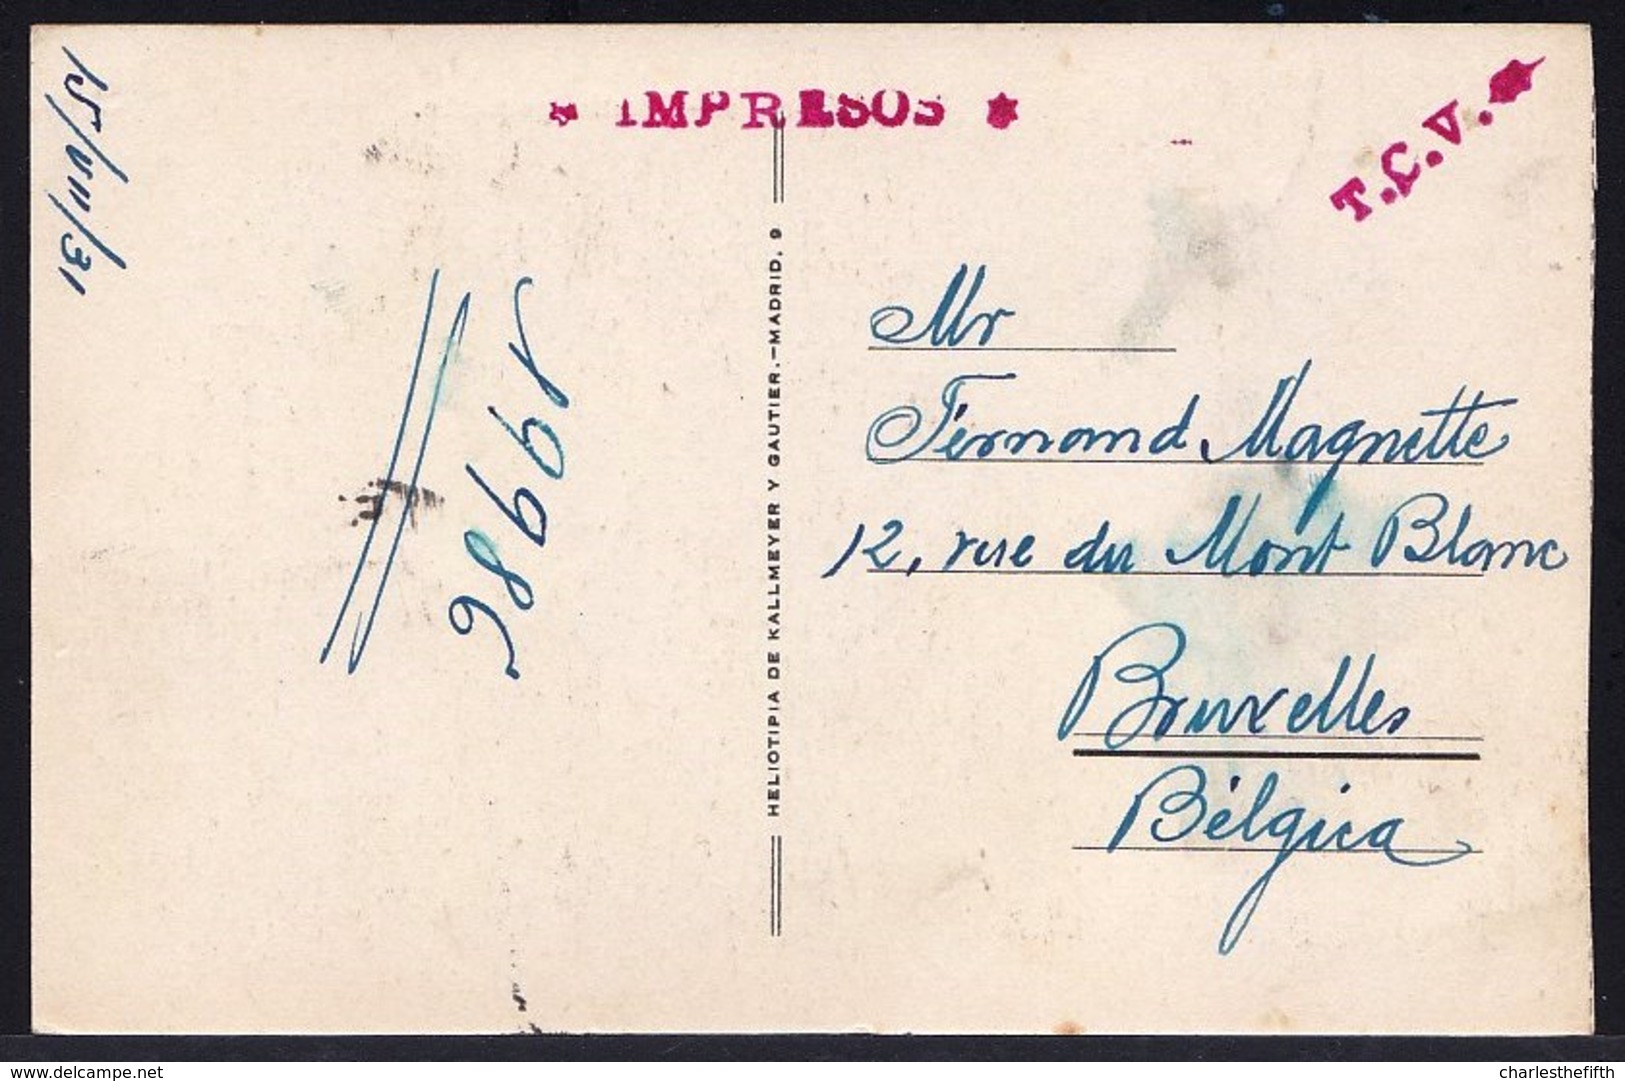 ★ IMPRESOS ★
T.C.V. ★
15/VIII/31
19986
HELIOTIPIA DE KALLMEYER Y GAUTIER.-MADRID. 9
Mr
Fernand Magnette
12, rue du Mont Blanc
Bruxelles
Bélgica
delcampe.net
charlesthefifth